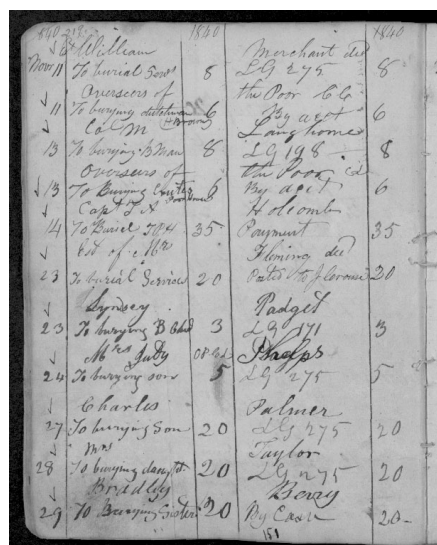 1840 1840 1840
William Merchant ded
Nov 11 To burial Sons 8 LG 275 8
Overseers of the Poor
11 To burying 6 By acct 6
Col M Langhorne
13 To burying B Man 8 LG 198 8
Overseers of the Poor
13 To Burying 6 By acct 6
Capt Holcomb
14 To Burial 35 Payment 35
Est of Mr Fleming ded
23 To burial Services 20 Posted to 20
Lynsey Padget
23 To burying B Child 3 LG 171 3
Mrs Judy Phelps
24 To burying son 5 LG 275 5
Charles Palmer
27 To burying Son 20 LG 275 20
Mrs Taylor
28 To burying daugt. 20 LG 275 20
Bradley Berry
29 To Burying Sister 20 By Cash 20
151